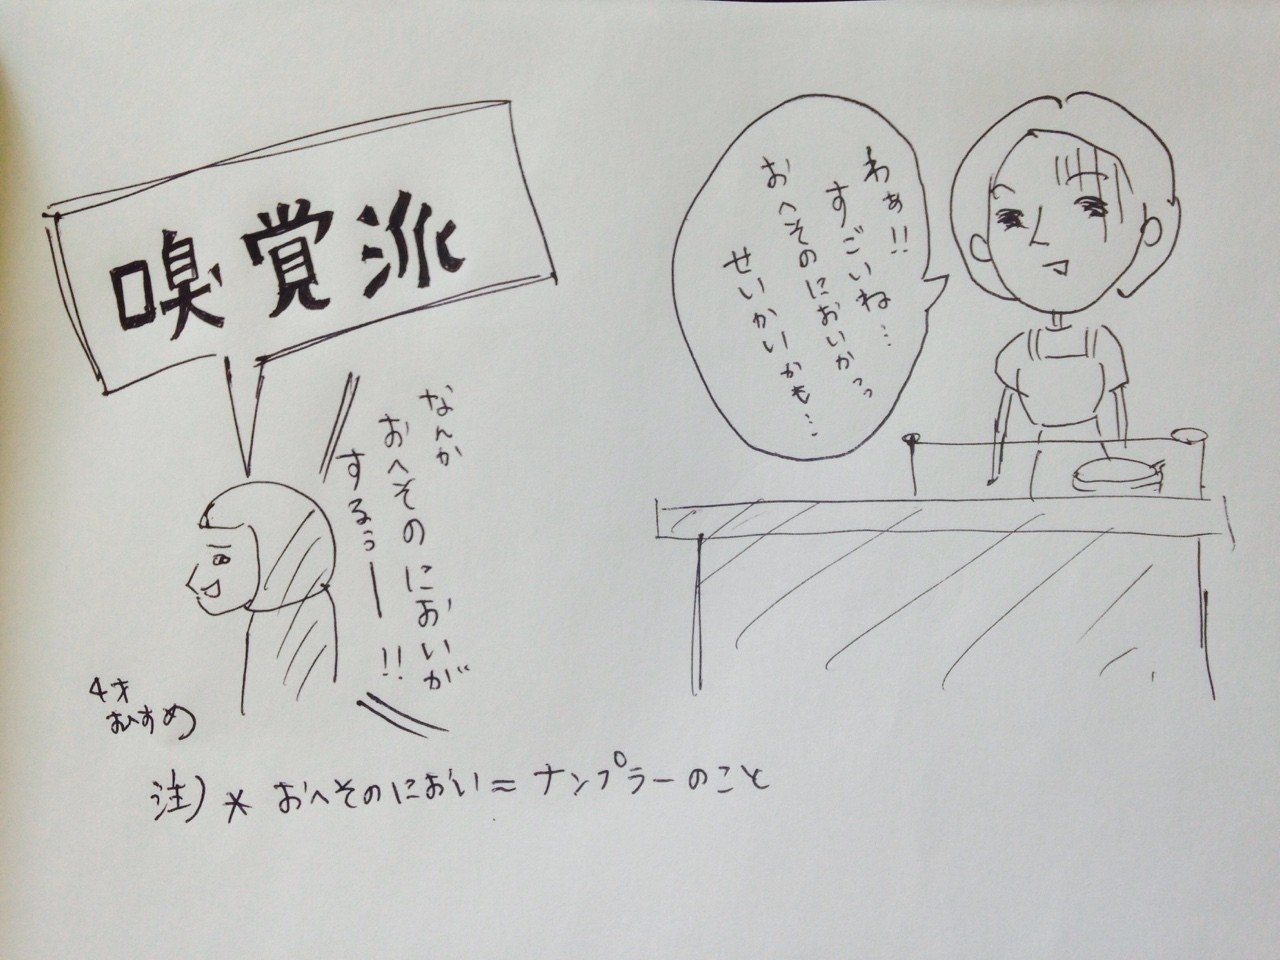 嗅覚派
なんか
おへそのにおいが
するぅー!!
4才
むすめ
わぁ!!
すごいね…
おへそのにおいかっ
せいかーいかも…
注)* おへそのにおい=ナンプラーのこと